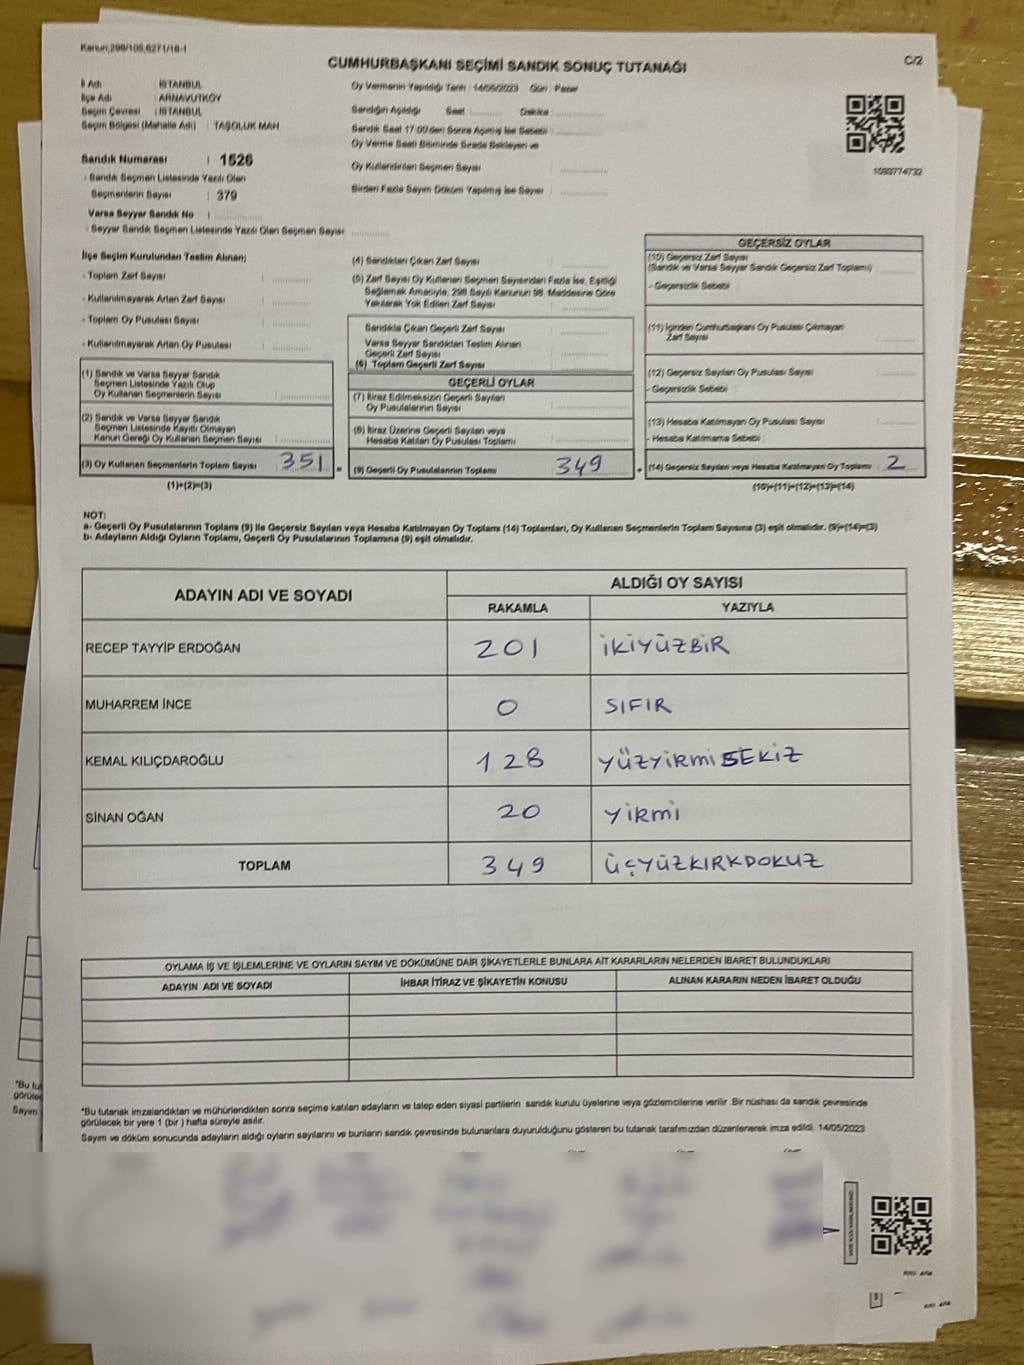 Kanun;298/105,6271/18-1
C/2
CUMHURBAŞKANI SEÇİMİ SANDIK SONUÇ TUTANAĞI
İl Adı : İSTANBUL
İlçe Adı : ARNAVUTKÖY
Seçim Çevresi : İSTANBUL
Seçim Bölgesi (Mahalle Adı) : TAŞOLUK MAH
Sandık Numarası : 1526
- Sandık Seçmen Listesinde Yazılı Olan
Seçmenlerin Sayısı : 379
Varsa Seyyar Sandık No :
- Seyyar Sandık Seçmen Listesinde Yazılı Olan Seçmen Sayısı:
Oy Vermenin Yapıldığı Tarih : 14/05/2023 Gün : Pazar
Sandığın Açıldığı Saat : Dakika :
Sandık Saat 17:00'den Sonra Açılmış İse Sebebi :
Oy Verme Saati Bitiminde Sırada Bekleyen ve
Oy Kullandırılan Seçmen Sayısı :
Birden Fazla Sayım Döküm Yapılmış İse Sayısı :
1093774732
İlçe Seçim Kurulundan Teslim Alınan;
- Toplam Zarf Sayısı :
- Kullanılmayarak Artan Zarf Sayısı :
- Toplam Oy Pusulası Sayısı :
- Kullanılmayarak Artan Oy Pusulası :
(1) Sandık ve Varsa Seyyar Sandık
Seçmen Listesinde Yazılı Olup
Oy Kullanan Seçmenlerin Sayısı :
(2) Sandık ve Varsa Seyyar Sandık
Seçmen Listesinde Kayıtlı Olmayan
Kanun Gereği Oy Kullanan Seçmen Sayısı :
(3) Oy Kullanan Seçmenlerin Toplam Sayısı : 351 =
(1)+(2)=(3)
(4) Sandıktan Çıkan Zarf Sayısı :
(5) Zarf Sayısı Oy Kullanan Seçmen Sayısından Fazla İse, Eşitliği
Sağlamak Amacıyla, 298 Sayılı Kanunun 98. Maddesine Göre
Yakılarak Yok Edilen Zarf Sayısı :
Sandıkta Çıkan Geçerli Zarf Sayısı :
Varsa Seyyar Sandıktan Teslim Alınan
Geçerli Zarf Sayısı :
(6) Toplam Geçerli Zarf Sayısı :
GEÇERLİ OYLAR
(7) İtiraz Edilmeksizin Geçerli Sayılan
Oy Pusulalarının Sayısı :
(8) İtiraz Üzerine Geçerli Sayılan veya
Hesaba Katılan Oy Pusulası Toplamı :
(9) Geçerli Oy Pusulalarının Toplamı : 349 +
GEÇERSİZ OYLAR
(10) Geçersiz Zarf Sayısı
(Sandık ve Varsa Seyyar Sandık Geçersiz Zarf Toplamı) :
- Geçersizlik Sebebi :
(11) İçinden Cumhurbaşkanı Oy Pusulası Çıkmayan
Zarf Sayısı :
(12) Geçersiz Sayılan Oy Pusulası Sayısı :
- Geçersizlik Sebebi :
(13) Hesaba Katılmayan Oy Pusulası Sayısı :
- Hesaba Katılmama Sebebi :
(14) Geçersiz Sayılan veya Hesaba Katılmayan Oy Toplamı : 2
(10)+(11)+(12)+(13)=(14)
NOT:
a- Geçerli Oy Pusulalarının Toplamı (9) ile Geçersiz Sayılan veya Hesaba Katılmayan Oy Toplamı (14) Toplamları, Oy Kullanan Seçmenlerin Toplam Sayısına (3) eşit olmalıdır. (9)+(14)=(3)
b- Adayların Aldığı Oyların Toplamı, Geçerli Oy Pusulalarının Toplamına (9) eşit olmalıdır.
ADAYIN ADI VE SOYADI
ALDIĞI OY SAYISI
RAKAMLA YAZIYLA
RECEP TAYYİP ERDOĞAN 201 İKİYÜZBİR
MUHARREM İNCE 0 SIFIR
KEMAL KILIÇDAROĞLU 128 YÜZYİRMİSEKİZ
SİNAN OĞAN 20 YİRMİ
TOPLAM 349 ÜÇYÜZKIRKDOKUZ
OYLAMA İŞ VE İŞLEMLERİNE VE OYLARIN SAYIM VE DÖKÜMÜNE DAİR ŞİKAYETLERLE BUNLARA AİT KARARLARIN NELERDEN İBARET BULUNDUKLARI
ADAYIN ADI VE SOYADI İHBAR İTİRAZ VE ŞİKAYETİN KONUSU ALINAN KARARIN NEDEN İBARET OLDUĞU
*Bu tutanak imzalandıktan ve mühürlendikten sonra seçime katılan adayların ve talep eden siyasi partilerin sandık kurulu üyelerine veya gözlemcilerine verilir. Bir nüshası da sandık çevresinde
görülecek bir yere 1 (bir ) hafta süreyle asılır.
Sayım ve döküm sonucunda adayların aldığı oyların sayılarını ve bunların sandık çevresinde bulunanlara duyurulduğunu gösteren bu tutanak tarafımızdan düzenlenerek imza edildi. 14/05/2023
*Bu tu
görülec
Sayım